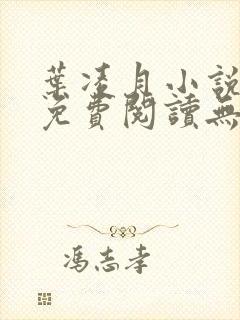 葉凌月小說
免費閱讀無
馮志孝